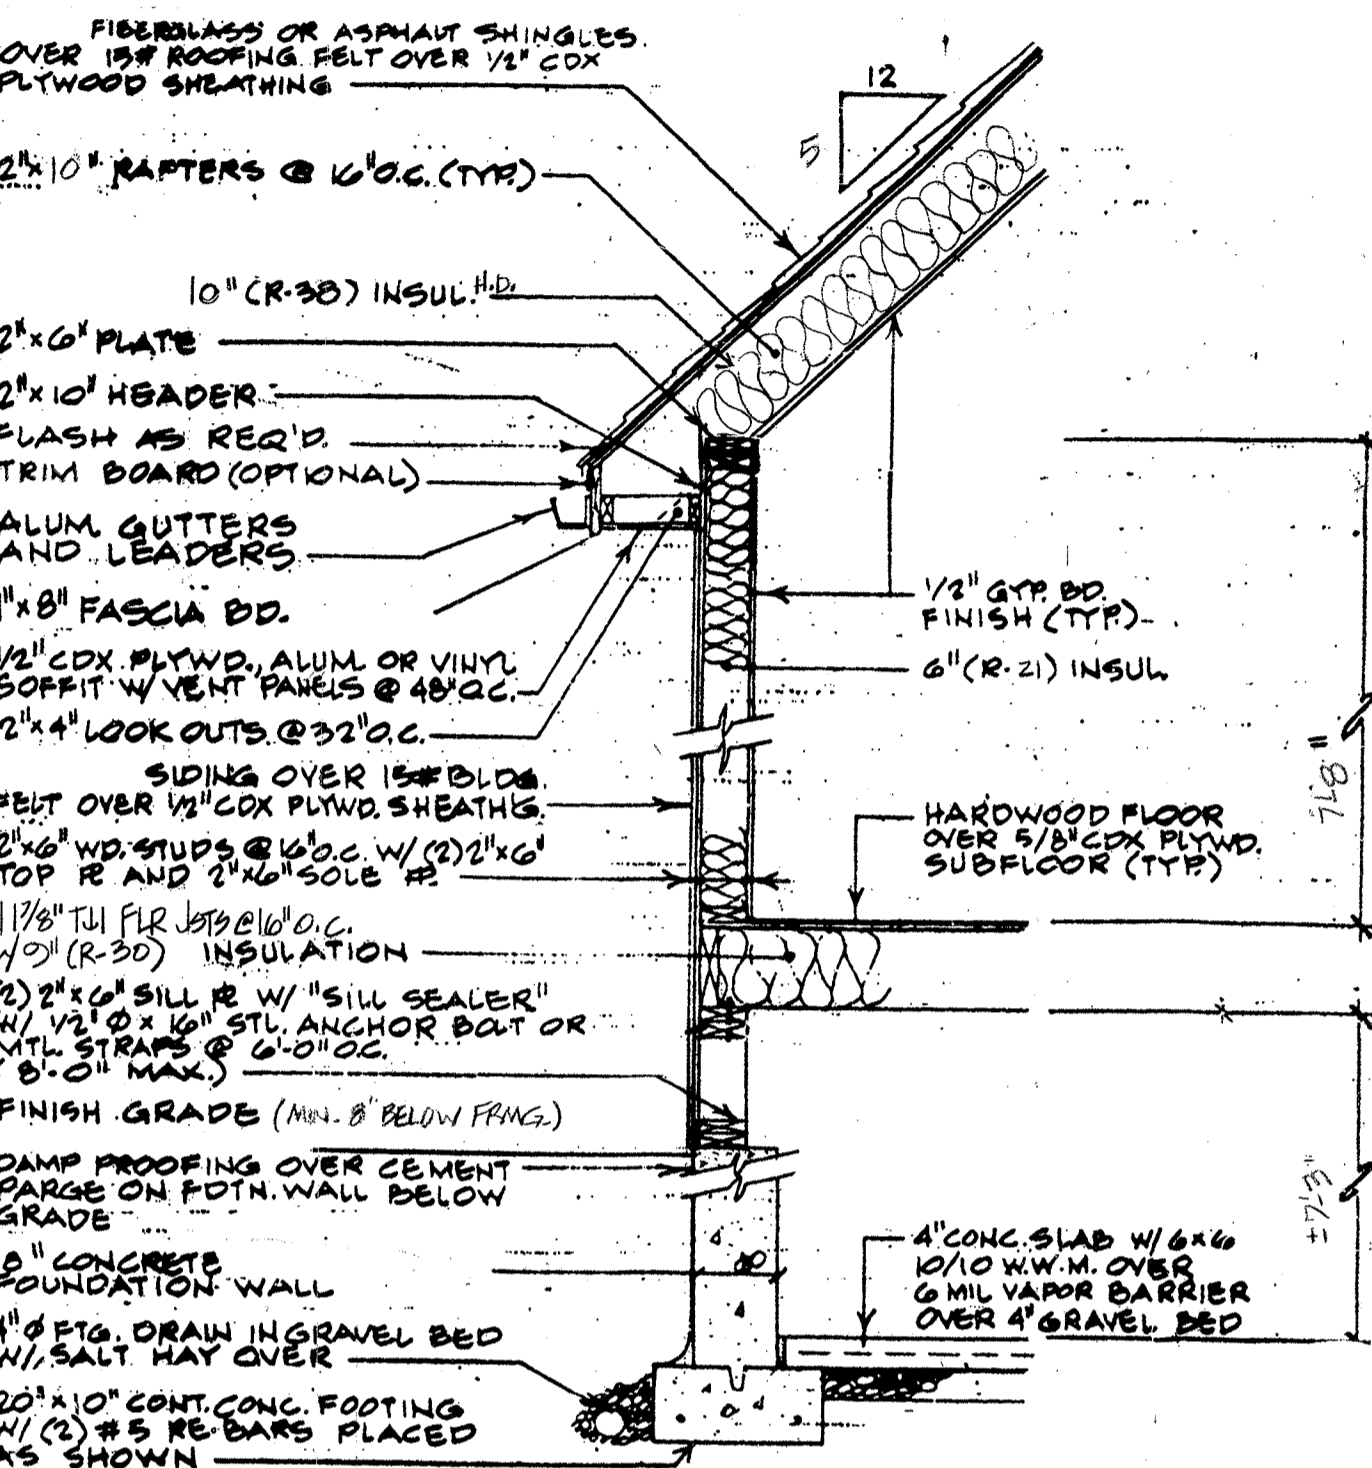 FIBERGLASS OR ASPHALT SHINGLES
OVER 15# ROOFING FELT OVER 1/2" CDX
PLYWOOD SHEATHING
12
5
2"x10" RAFTERS @ 16"O.C. (TYP.)
10" (R-38) INSUL. H.D.
2"x6" PLATE
2"x10" HEADER
FLASH AS REQ'D.
TRIM BOARD (OPTIONAL)
ALUM. GUTTERS
AND LEADERS
1"x8" FASCIA BD.
1/2" CDX PLYWD., ALUM. OR VINYL
SOFFIT W/ VENT PANELS @ 48"O.C.
2"x4" LOOK OUTS @ 32"O.C.
SIDING OVER 15# BLDG.
FELT OVER 1/2" CDX PLYWD. SHEATH'G.
2"x6" WD. STUDS @ 16"O.C. W/ (2) 2"x6"
TOP PL AND 2"x6" SOLE PL
11 7/8" TJI FLR JSTS @ 16" O.C.
W/ 9" (R-30) INSULATION
(2) 2"x6" SILL PL W/ "SILL SEALER"
W/ 1/2" Ø x 16" STL. ANCHOR BOLT OR
MTL. STRAPS @ 6'-0" O.C.
(8'-0" MAX.)
FINISH GRADE (MIN. 8" BELOW FRMG.)
DAMP PROOFING OVER CEMENT
PARGE ON FDTN. WALL BELOW
GRADE
8" CONCRETE
FOUNDATION WALL
4" Ø FTG. DRAIN IN GRAVEL BED
W/ SALT HAY OVER
20"x10" CONT. CONC. FOOTING
W/ (2) #5 RE-BARS PLACED
AS SHOWN
1/2" GYP. BD.
FINISH (TYP.)
6" (R-21) INSUL.
HARDWOOD FLOOR
OVER 5/8" CDX PLYWD.
SUBFLOOR (TYP.)
4" CONC. SLAB W/ 6x6
10/10 W.W.M. OVER
6 MIL VAPOR BARRIER
OVER 4" GRAVEL BED
±7'-3"